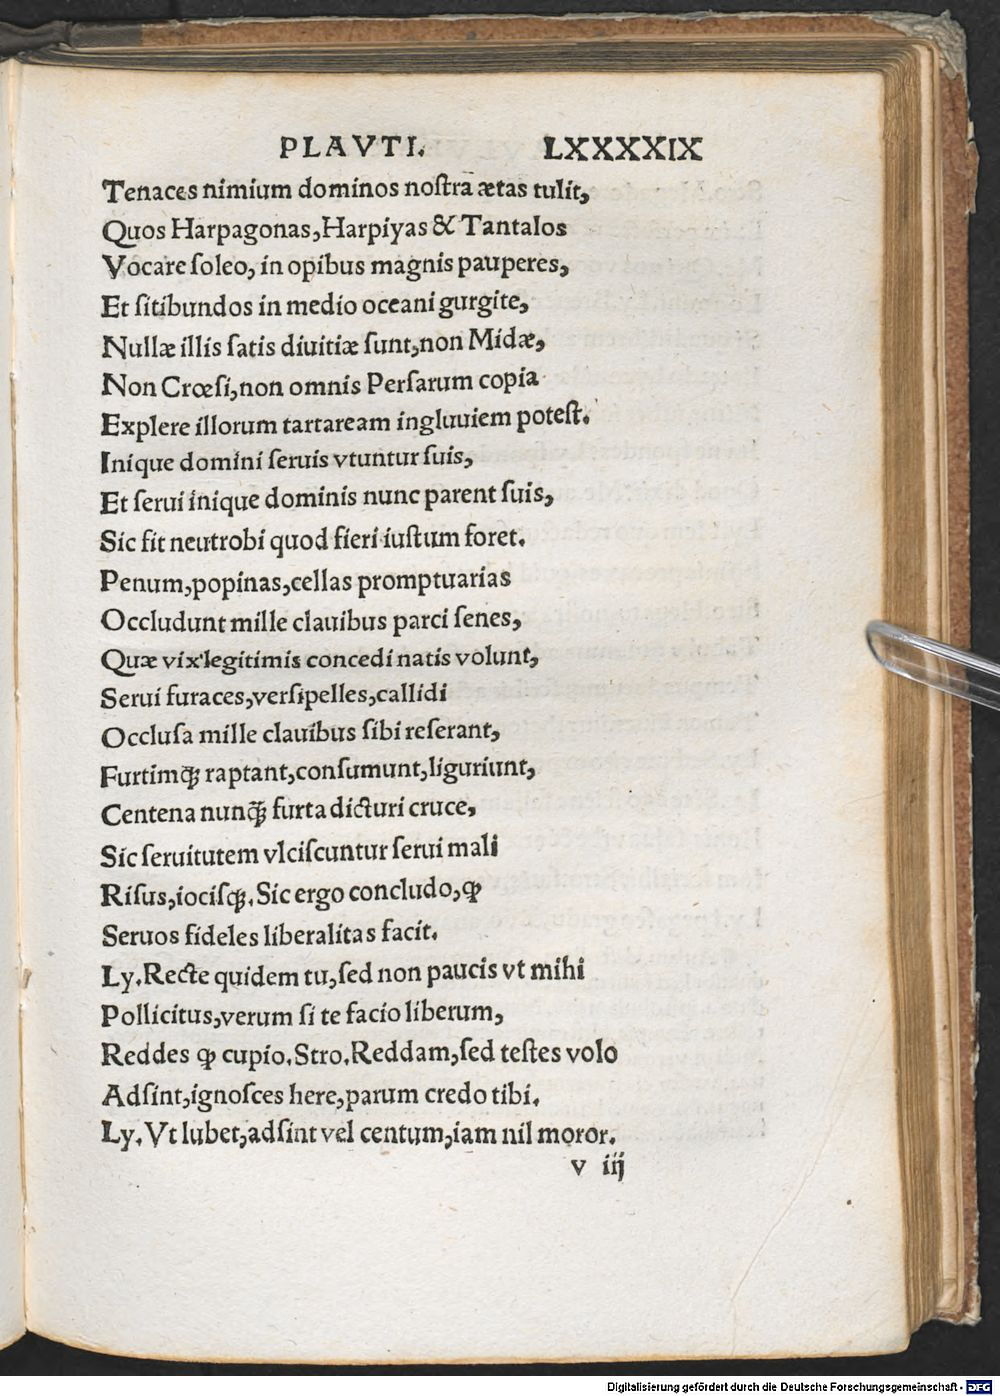 PLAVTI. LXXXXIX
Tenaces nimium dominos noſtra ætas tulit,
Quos Harpagonas, Harpiyas & Tantalos
Vocare ſoleo, in opibus magnis pauperes,
Et ſitibundos in medio oceani gurgite,
Nullæ illis ſatis diuitiæ ſunt, non Midæ,
Non Crœſi, non omnis Perſarum copia
Explere illorum tartaream ingluuiem poteſt.
Inique domini ſeruis vtuntur ſuis,
Et ſerui inique dominis nunc parent ſuis,
Sic fit neutrobi quod fieri iuſtum foret.
Penum, popinas, cellas promptuarias
Occludunt mille clauibus parci ſenes,
Quæ vix legitimis concedi natis volunt,
Serui furaces, verſipelles, callidi
Occluſa mille clauibus ſibi reſerant,
Furtimq̃ raptant, conſumunt, liguriunt,
Centena nunq̃ furta dicturi cruce,
Sic ſeruitutem vlciſcuntur ſerui mali
Riſus, iociſq̃. Sic ergo concludo, ꝙ
Seruos fideles liberalitas facit.
Ly. Recte quidem tu, ſed non paucis vt mihi
Pollicitus, verum ſi te facio liberum,
Reddes ꝙ cupio. Stro. Reddam, ſed teſtes volo
Adſint, ignoſces here, parum credo tibi.
Ly. Vt lubet, adſint vel centum, iam nil moror.
v iij
Digitalisierung gefördert durch die Deutsche Forschungsgemeinschaft - DFG